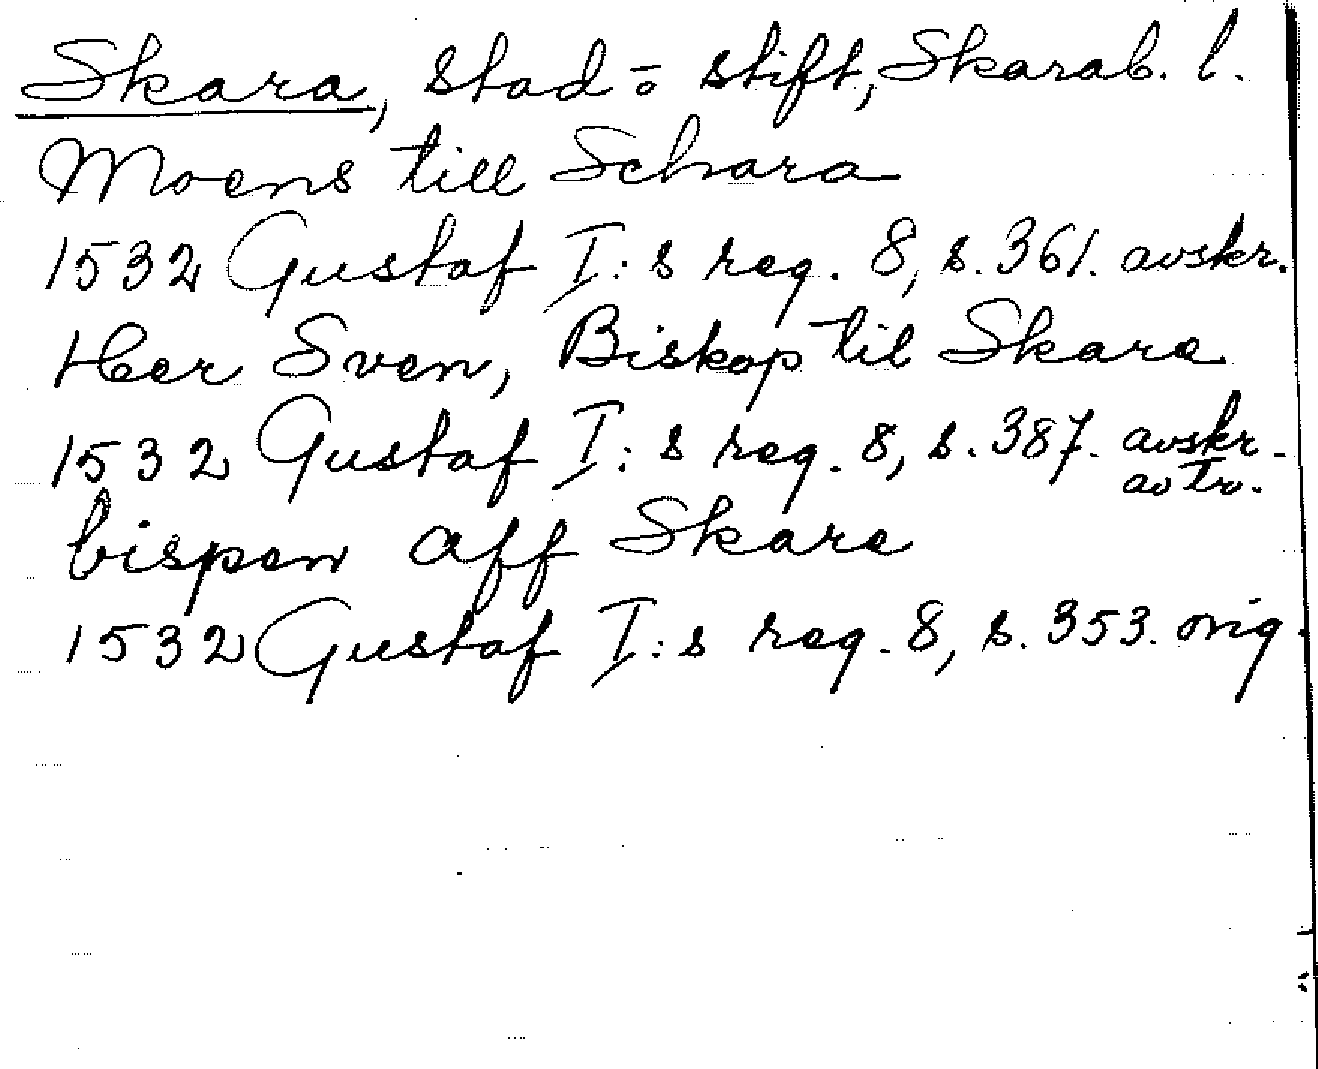 Skara, stad o stift, Skarab. l.
Moens till Schara
1532 Gustaf I:s reg. 8, s. 361. avskr.
Her Sven, Biskop til Skare
1532 Gustaf I:s reg. 8, s. 387. avskr.
av Tr.
bispen aff Skare
1532 Gustaf I:s reg. 8, s. 353. orig.